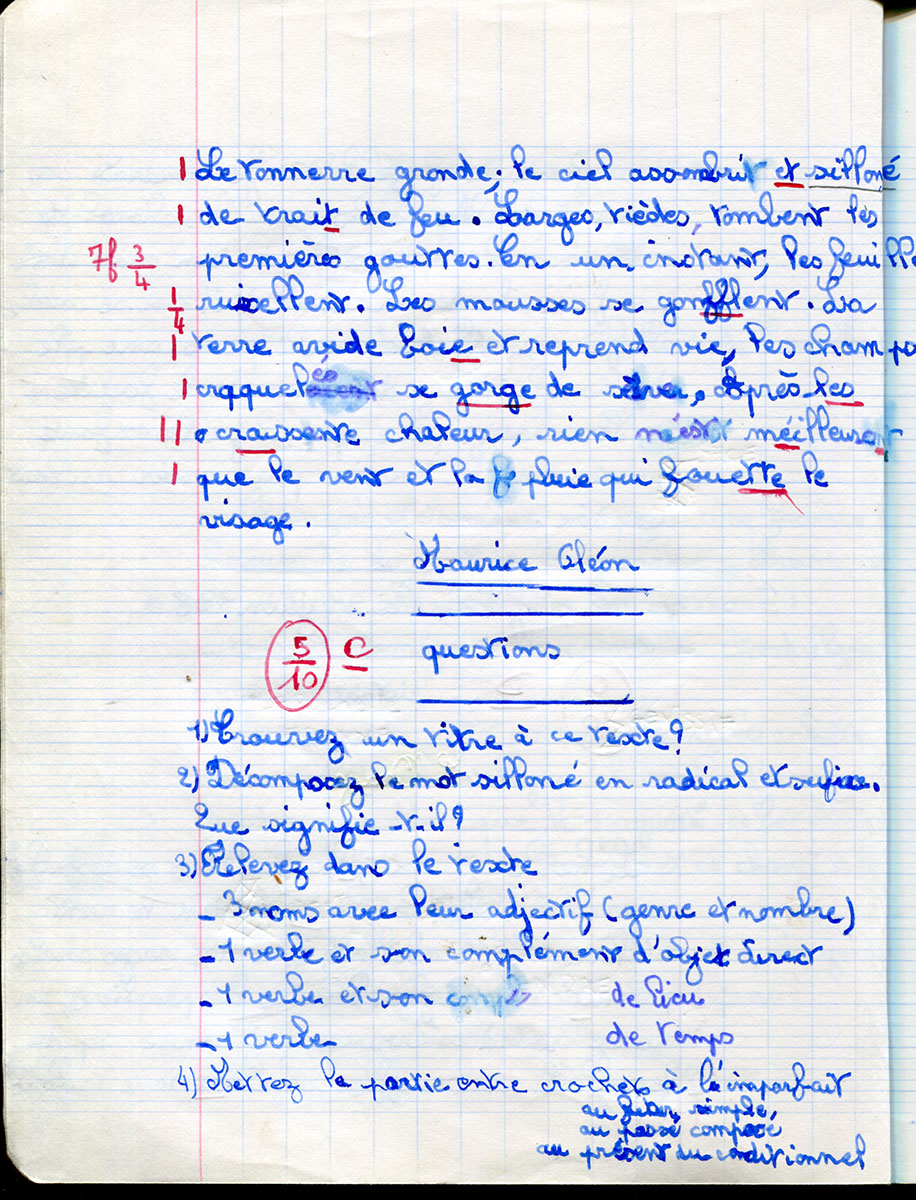 1 Le tonnerre gronde; le ciel assombrit et silloné
1 de trait de feu. Larges, tièdes, tombent les
7f 3/4 premières gouttes. En un instant, les feuille
1/4 ruissellent. Les mousses se gonfflent. La
1 terre avide boie et reprend vie, les champs
1 craquelés se gorge de sève, après les
11 crassente chaleur, rien n'est méilleur
1 que le vent et la pluie qui fouette le
visage.
Maurice Oléon
5/10 C questions
1) Trouvez un titre à ce texte?
2) Décomposez le mot silloné en radical et sufixe.
Que signifie-t-il?
3) Relevez dans le texte
- 3 noms avec leur adjectif (genre et nombre)
- 1 verbe et son complément d'objet direct
- 1 verbe et son comp de lieu
- 1 verbe de temps
4) Mettez la partie entre crochets à l'imparfait
au futur simple,
au passé composé
au présent du conditionnel